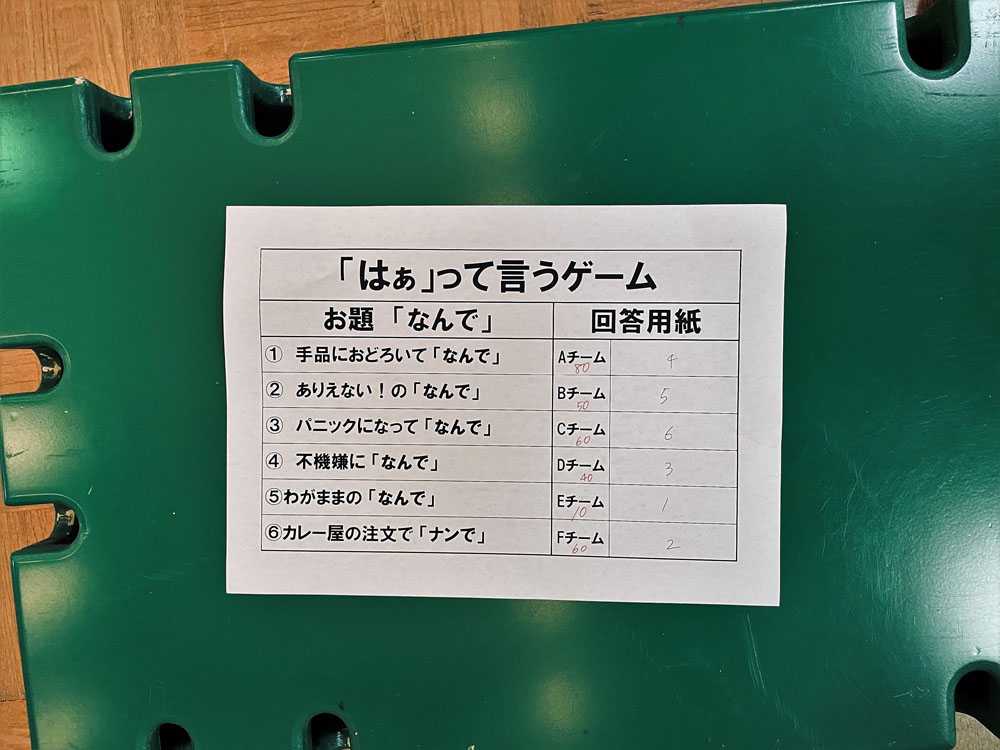 「はぁ」って言うゲーム
お題 「なんで」 回答用紙
① 手品におどろいて「なんで」 Aチーム 80 4
② ありえない!の「なんで」 Bチーム 50 5
③ パニックになって「なんで」 Cチーム 60 6
④ 不機嫌に「なんで」 Dチーム 40 3
⑤わがままの「なんで」 Eチーム 10 1
⑥カレー屋の注文で「ナンで」 Fチーム 60 2